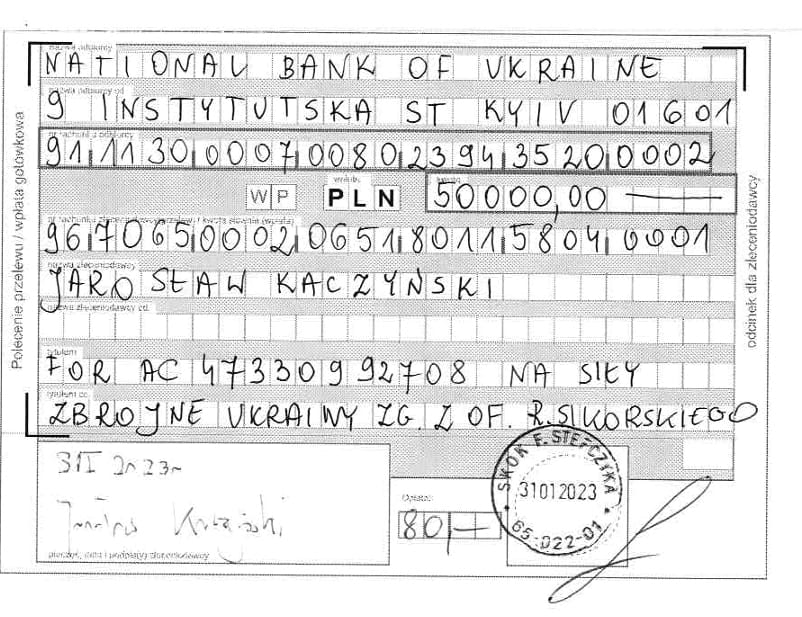 nazwa odbiorcy
NATIONAL BANK OF UKRAINE
nazwa odbiorcy cd.
9 INSTYTUTSKA ST KYIV 01601
nr rachunku odbiorcy
91 1130 0007 0080 2394 3520 0002
WP PLN 50000,00
nr rachunku zleceniodawcy (przelew) / kwota słownie (wpłata)
96 7065 0002 0651 8011 5804 0001
nazwa zleceniodawcy
JAROSŁAW KACZYŃSKI
nazwa zleceniodawcy cd.
tytułem
FOR AC 47330992708 NA SIŁY
tytułem cd.
ZBROJNE UKRAINY ZG. Z OF. R. SIKORSKIEGO
Polecenie przelewu / wpłata gotówkowa
odcinek dla zleceniodawcy
31 I 2023r
pieczęć, data i podpis(y) zleceniodawcy
Opłata:
80,-
SKOK F. STEFCZYKA
31012023
65-022-01